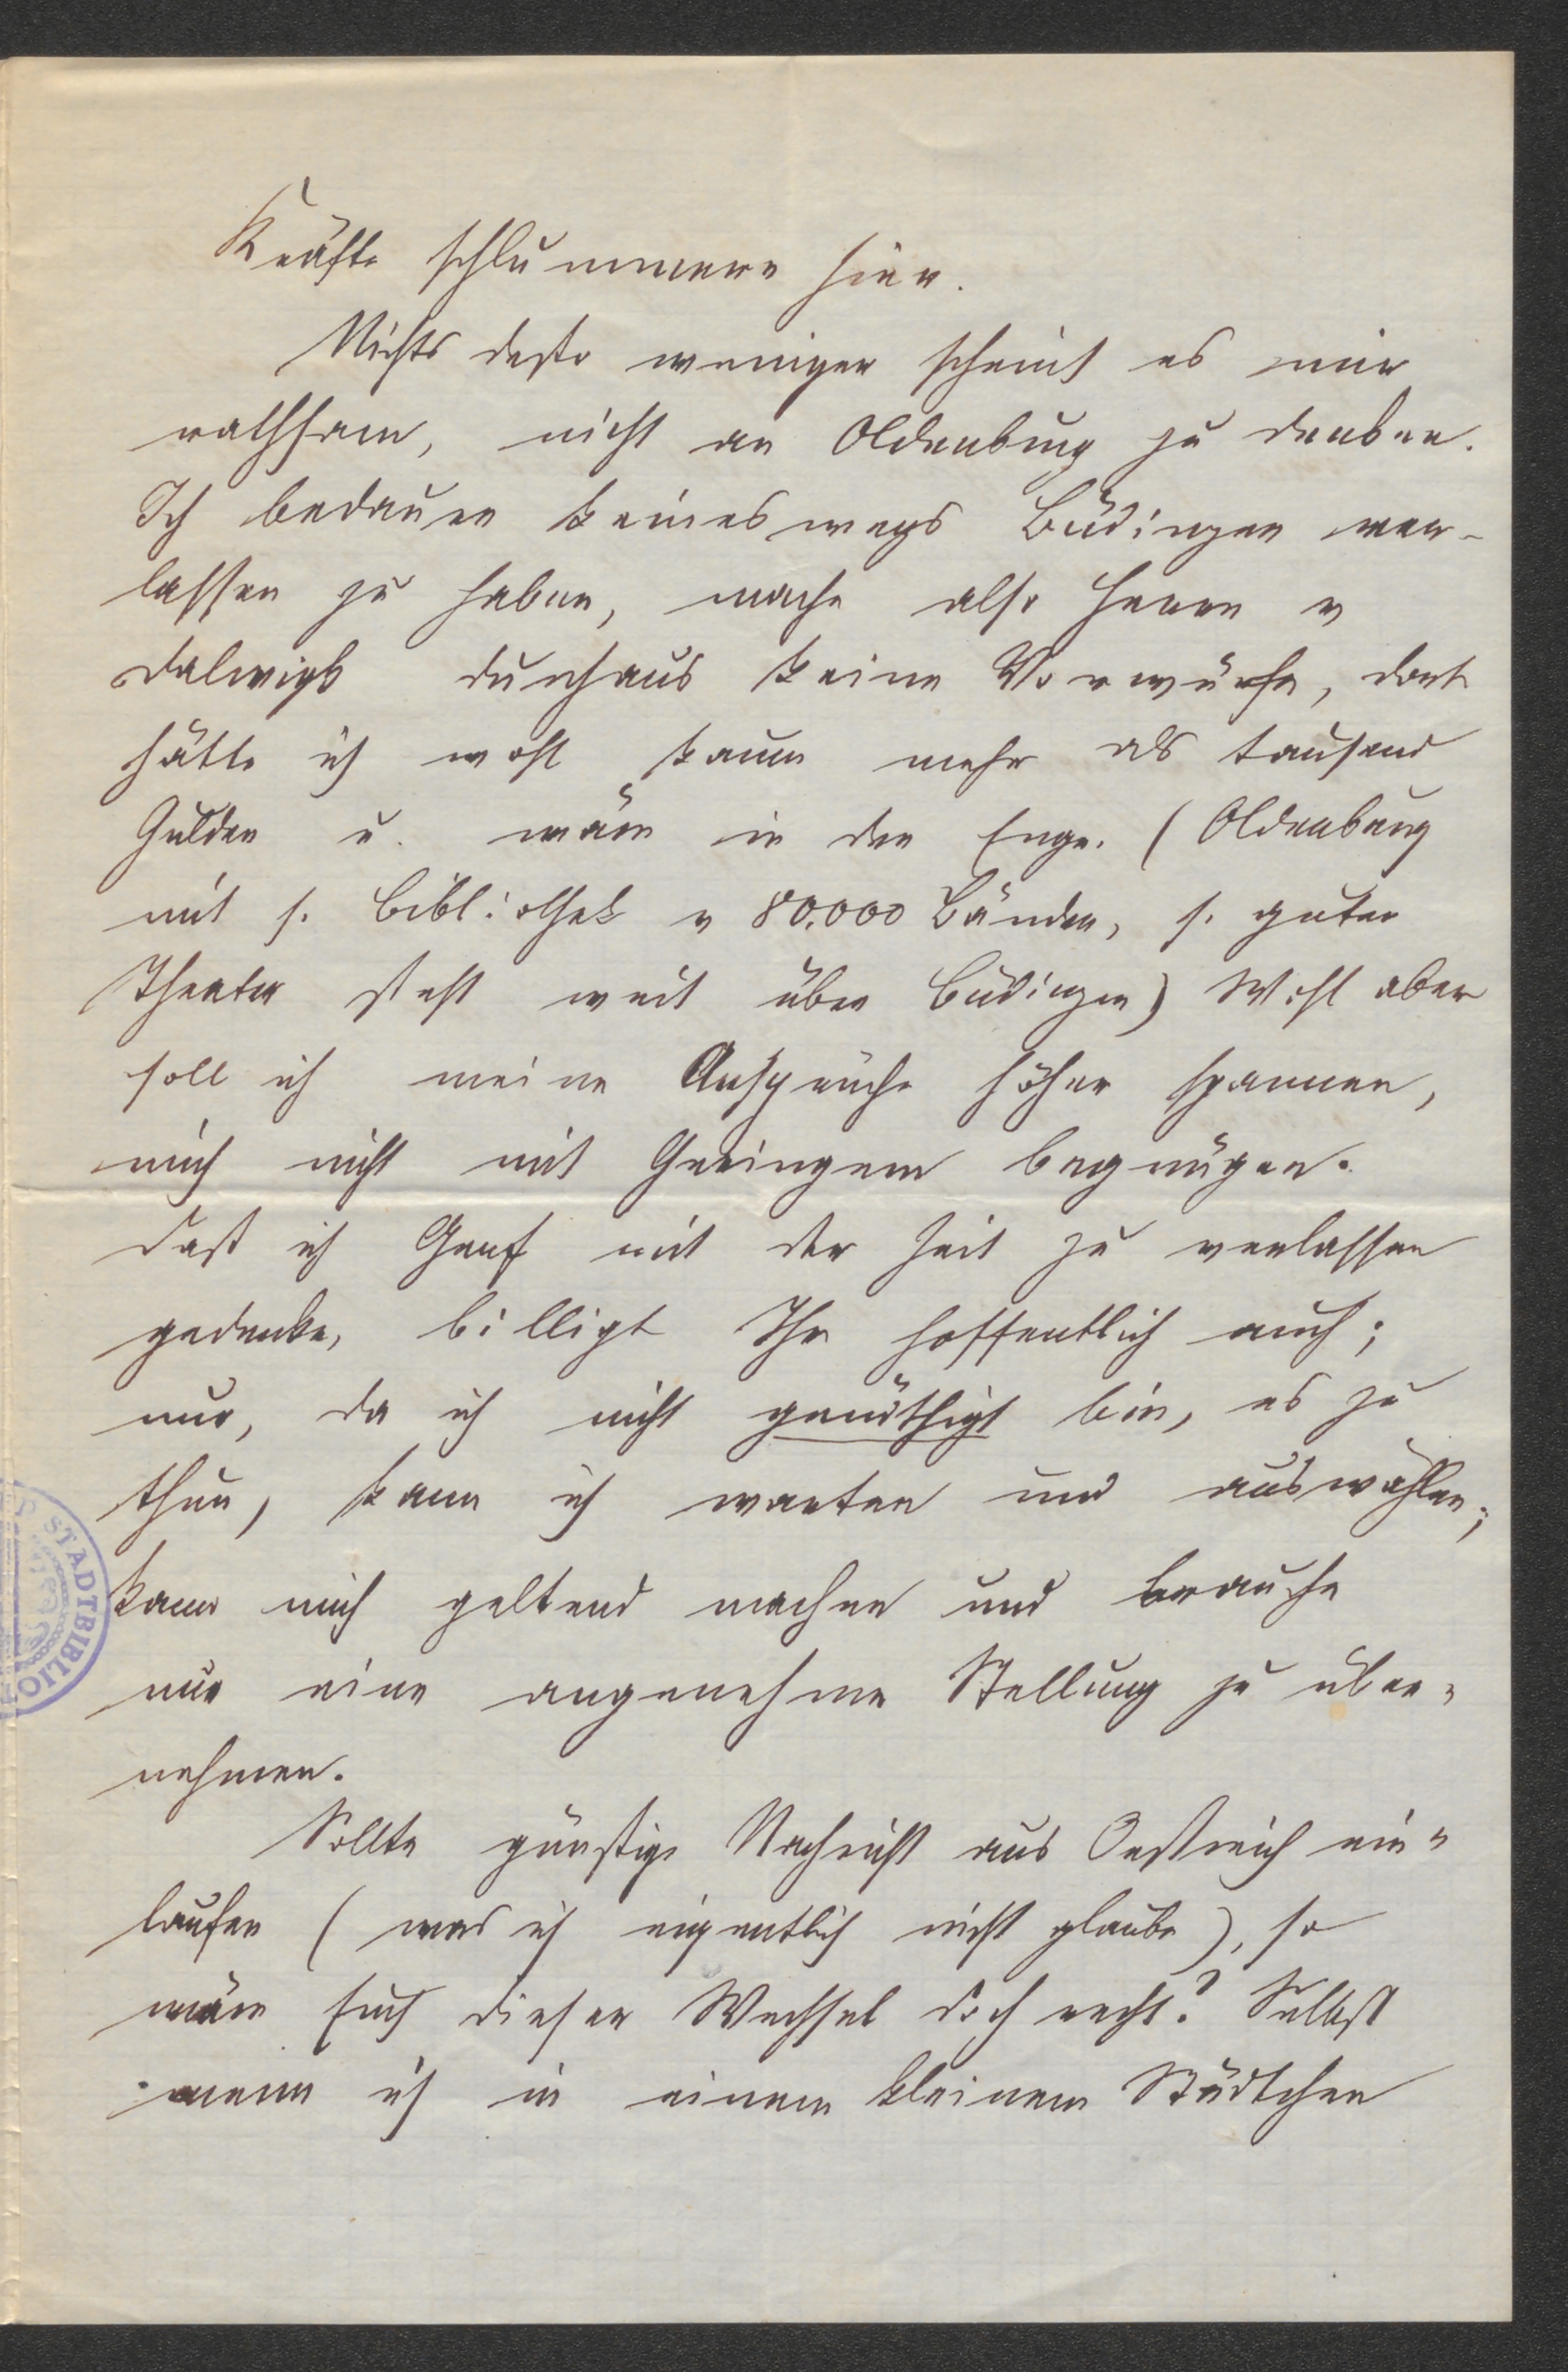 Kräfte schlummern hier.
Nichts desto weniger scheint es mir
rathsam, nicht an Oldenburg zu denken.
Ich bedaure keineswegs Büdingen ver-
lassen zu haben, mache also Herrn v
Dalwigk durchaus keine Vorwürfe, dort
hätte ich wohl kaum mehr als tausend
Gulden u. wäre in der Enge. (Oldenburg
mit s. Bibliothek v 80.000 Bänden, s. guten
Theater steht weit über Büdingen) Wohl aber
soll ich meine Ansprüche höher spannen,
mich nicht mit Geringem begnügen.
Daß ich Genf mit der Zeit zu verlassen
gedenke, billigt Ihr hoffentlich auch;
nur, da ich nicht genöthigt bin, es zu
thun, kann ich warten und auswählen;
kann mich geltend machen und brauche
nur eine angenehme Stellung zu über-
nehmen.
Sollte günstige Nachricht aus Oestreich ein-
laufen (was ich eigentlich nicht glaube), so
wäre Euch dieser Wechsel doch recht? Selbst
wenn ich in einem kleinem Städtchen
STADTBIBLIOT